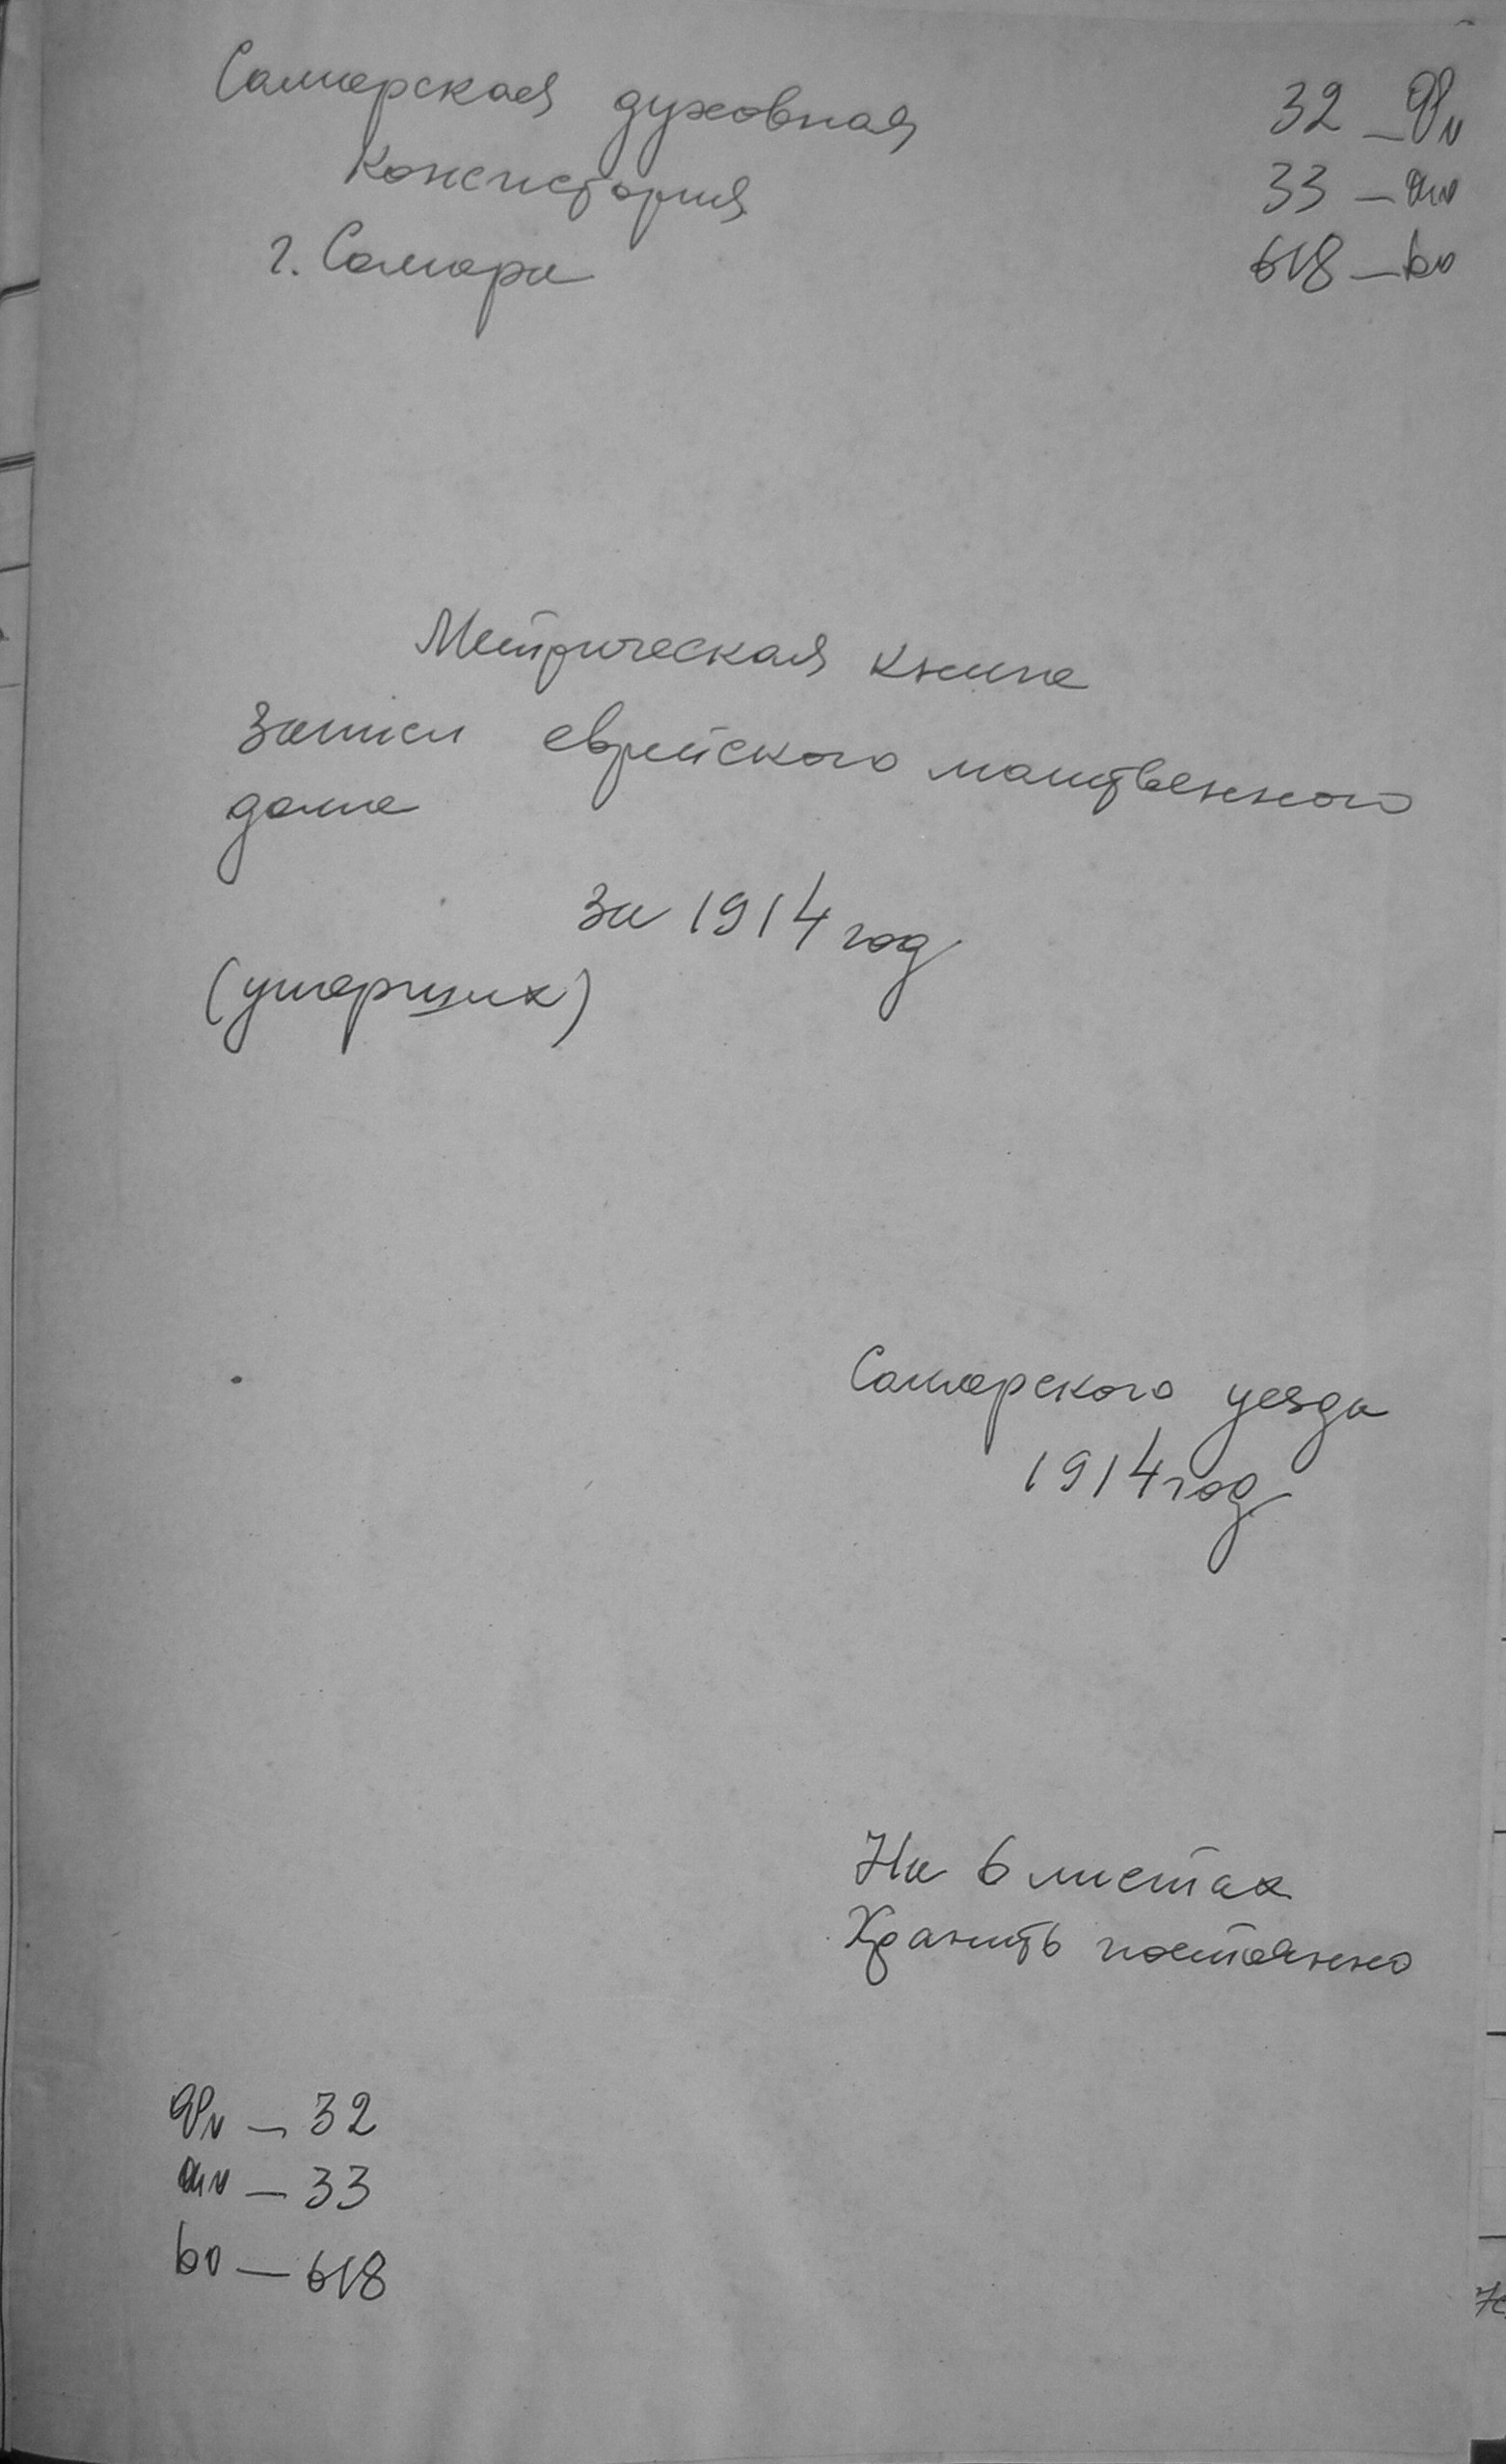 Самарская духовная
консистория
г. Самара
32 –
33 –
618 –
Метрическая книга
записи еврейского молитвенного
дома
за 1914 год
(умерших)
Самарского уезда
1914 год
На 6 листах
Хранить постоянно
– 32
– 33
– 618